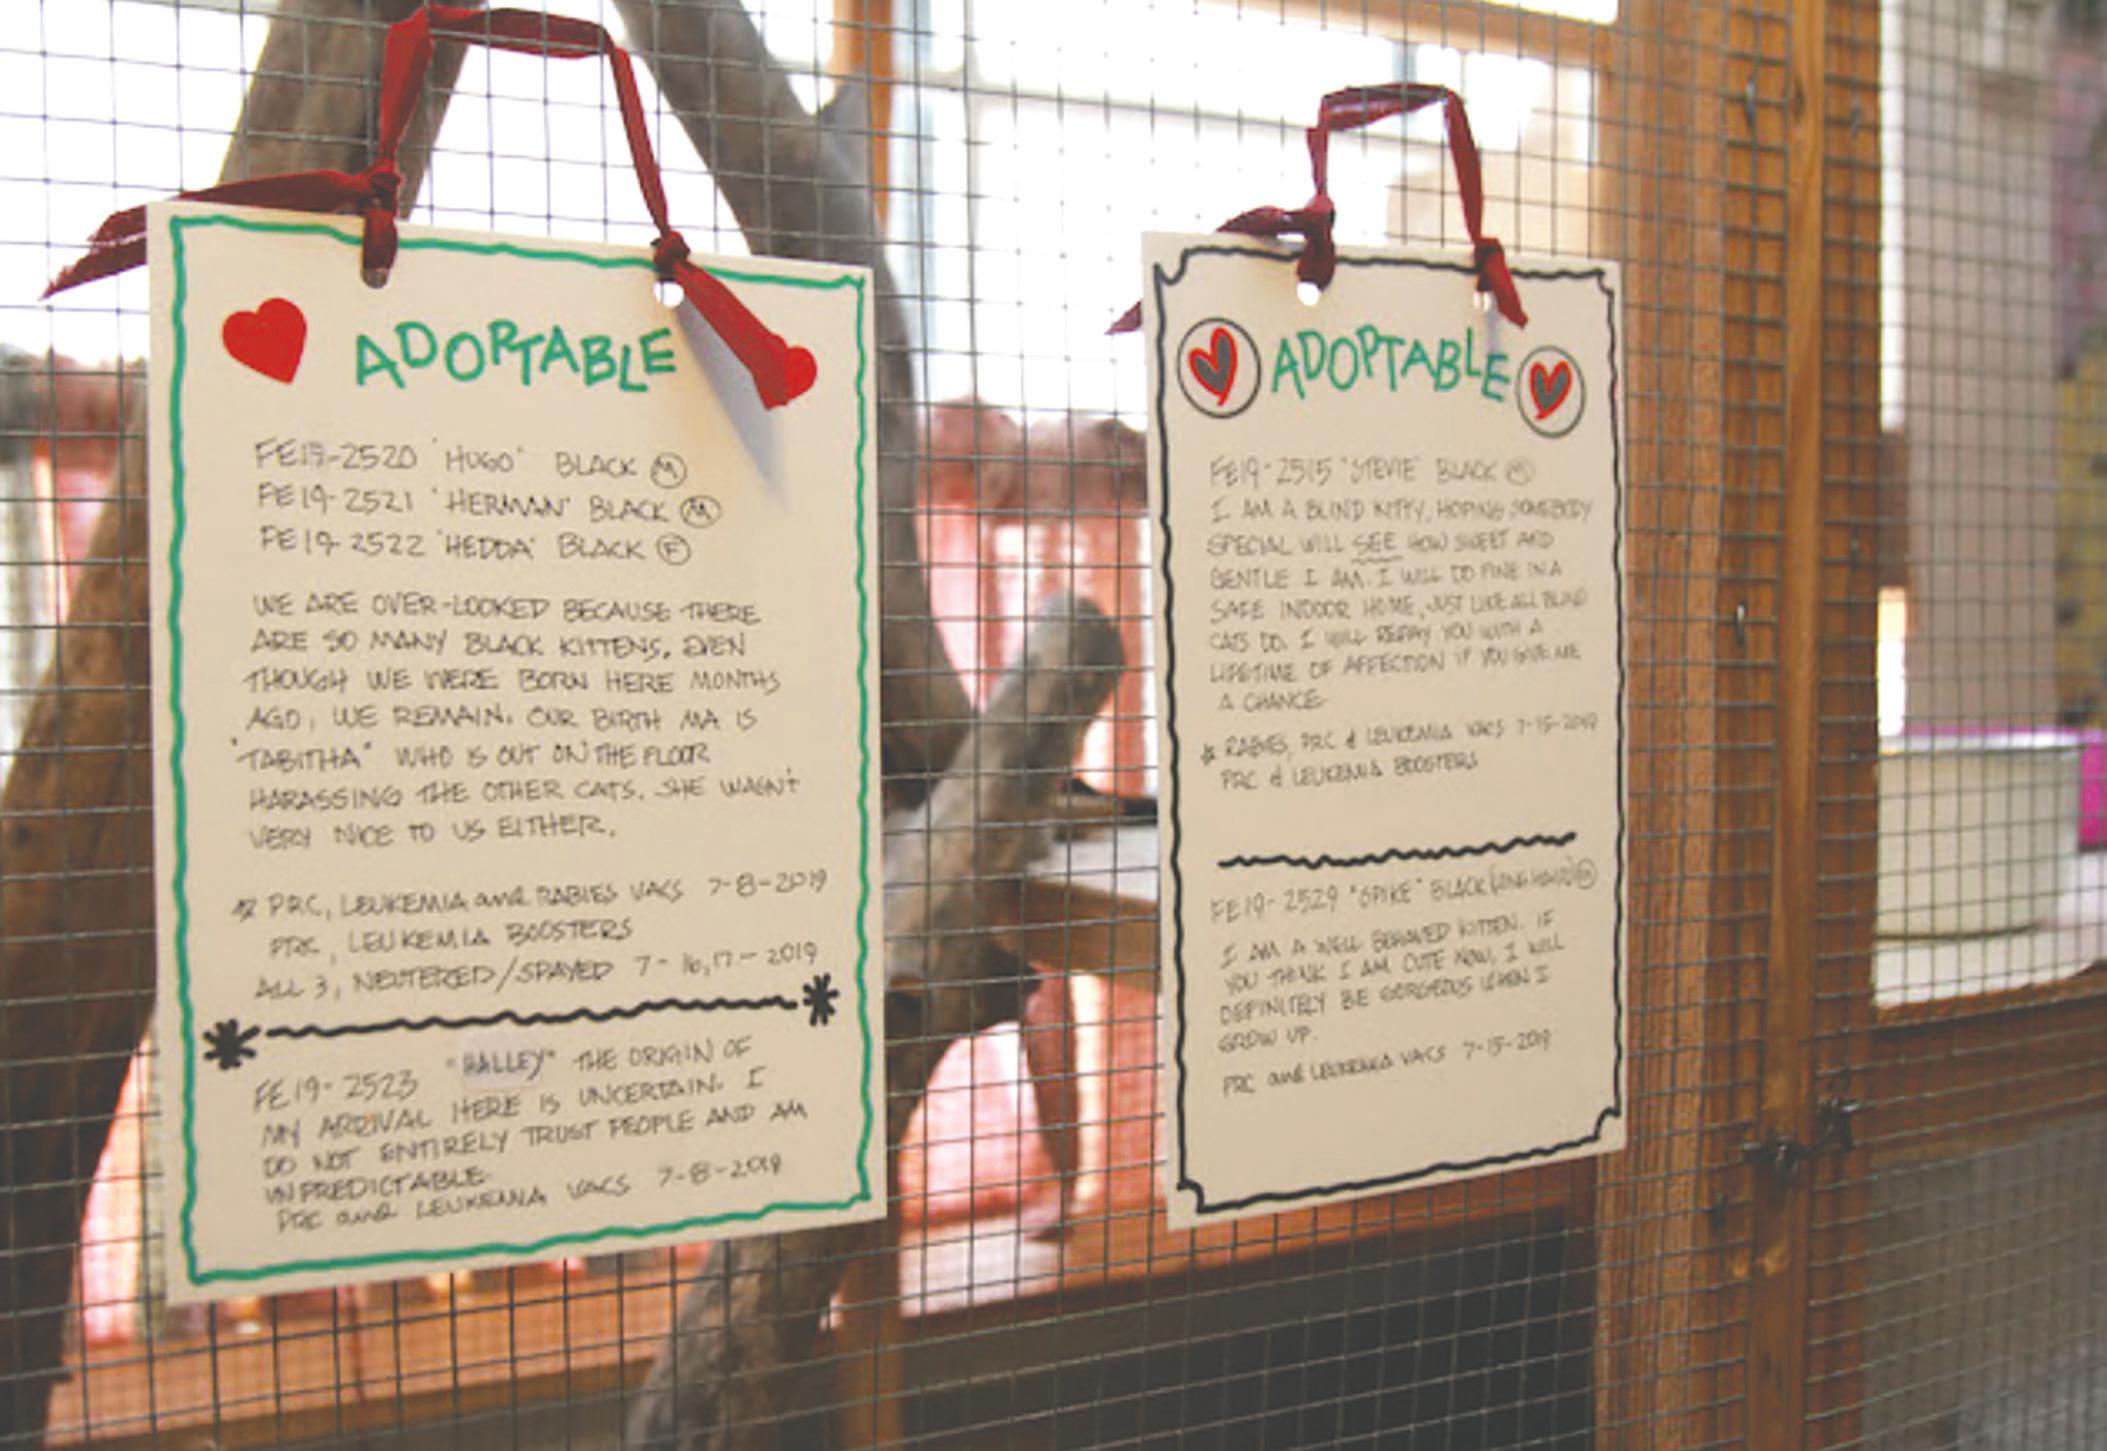 ADOPTABLE
FE19-2520 'HUGO' BLACK M
FE19-2521 'HERMAN' BLACK M
FE19-2522 'HEDDA' BLACK F
WE ARE OVER-LOOKED BECAUSE THERE
ARE SO MANY BLACK KITTENS. EVEN
THOUGH WE WERE BORN HERE MONTHS
AGO, WE REMAIN. OUR BIRTH MA IS
"TABITHA" WHO IS OUT ON THE FLOOR
HARASSING THE OTHER CATS. SHE WASN'T
VERY NICE TO US EITHER.
* PRC, LEUKEMIA and RABIES VACS 7-8-2019
PRC, LEUKEMIA BOOSTERS
ALL 3, NEUTERED/SPAYED 7-16,17-2019
"HALLEY" THE ORIGIN OF
FE19-2523
MY ARRIVAL HERE IS UNCERTAIN. I
DO NOT ENTIRELY TRUST PEOPLE AND AM
UNPREDICTABLE.
PRC and LEUKEMIA VACS 7-8-2019
ADOPTABLE
FE19-2515 "STEVIE" BLACK M
I AM A BLIND KITTY, HOPING SOMEBODY
SPECIAL WILL SEE HOW SWEET AND
GENTLE I AM. I WILL DO FINE IN A
SAFE INDOOR HOME, JUST LIKE ALL BLIND
CATS DO. I WILL REPAY YOU WITH A
LIFETIME OF AFFECTION IF YOU GIVE ME
A CHANCE.
* RABIES, PRC & LEUKEMIA VACS 7-15-2019
PRC & LEUKEMIA BOOSTERS
FE19-2529 "SPIKE" BLACK (LONG HAIR) M
I AM A WELL BEHAVED KITTEN. IF
YOU THINK I AM CUTE NOW, I WILL
DEFINITELY BE GORGEOUS WHEN I
GROW UP.
PRC and LEUKEMIA VACS 7-15-2019